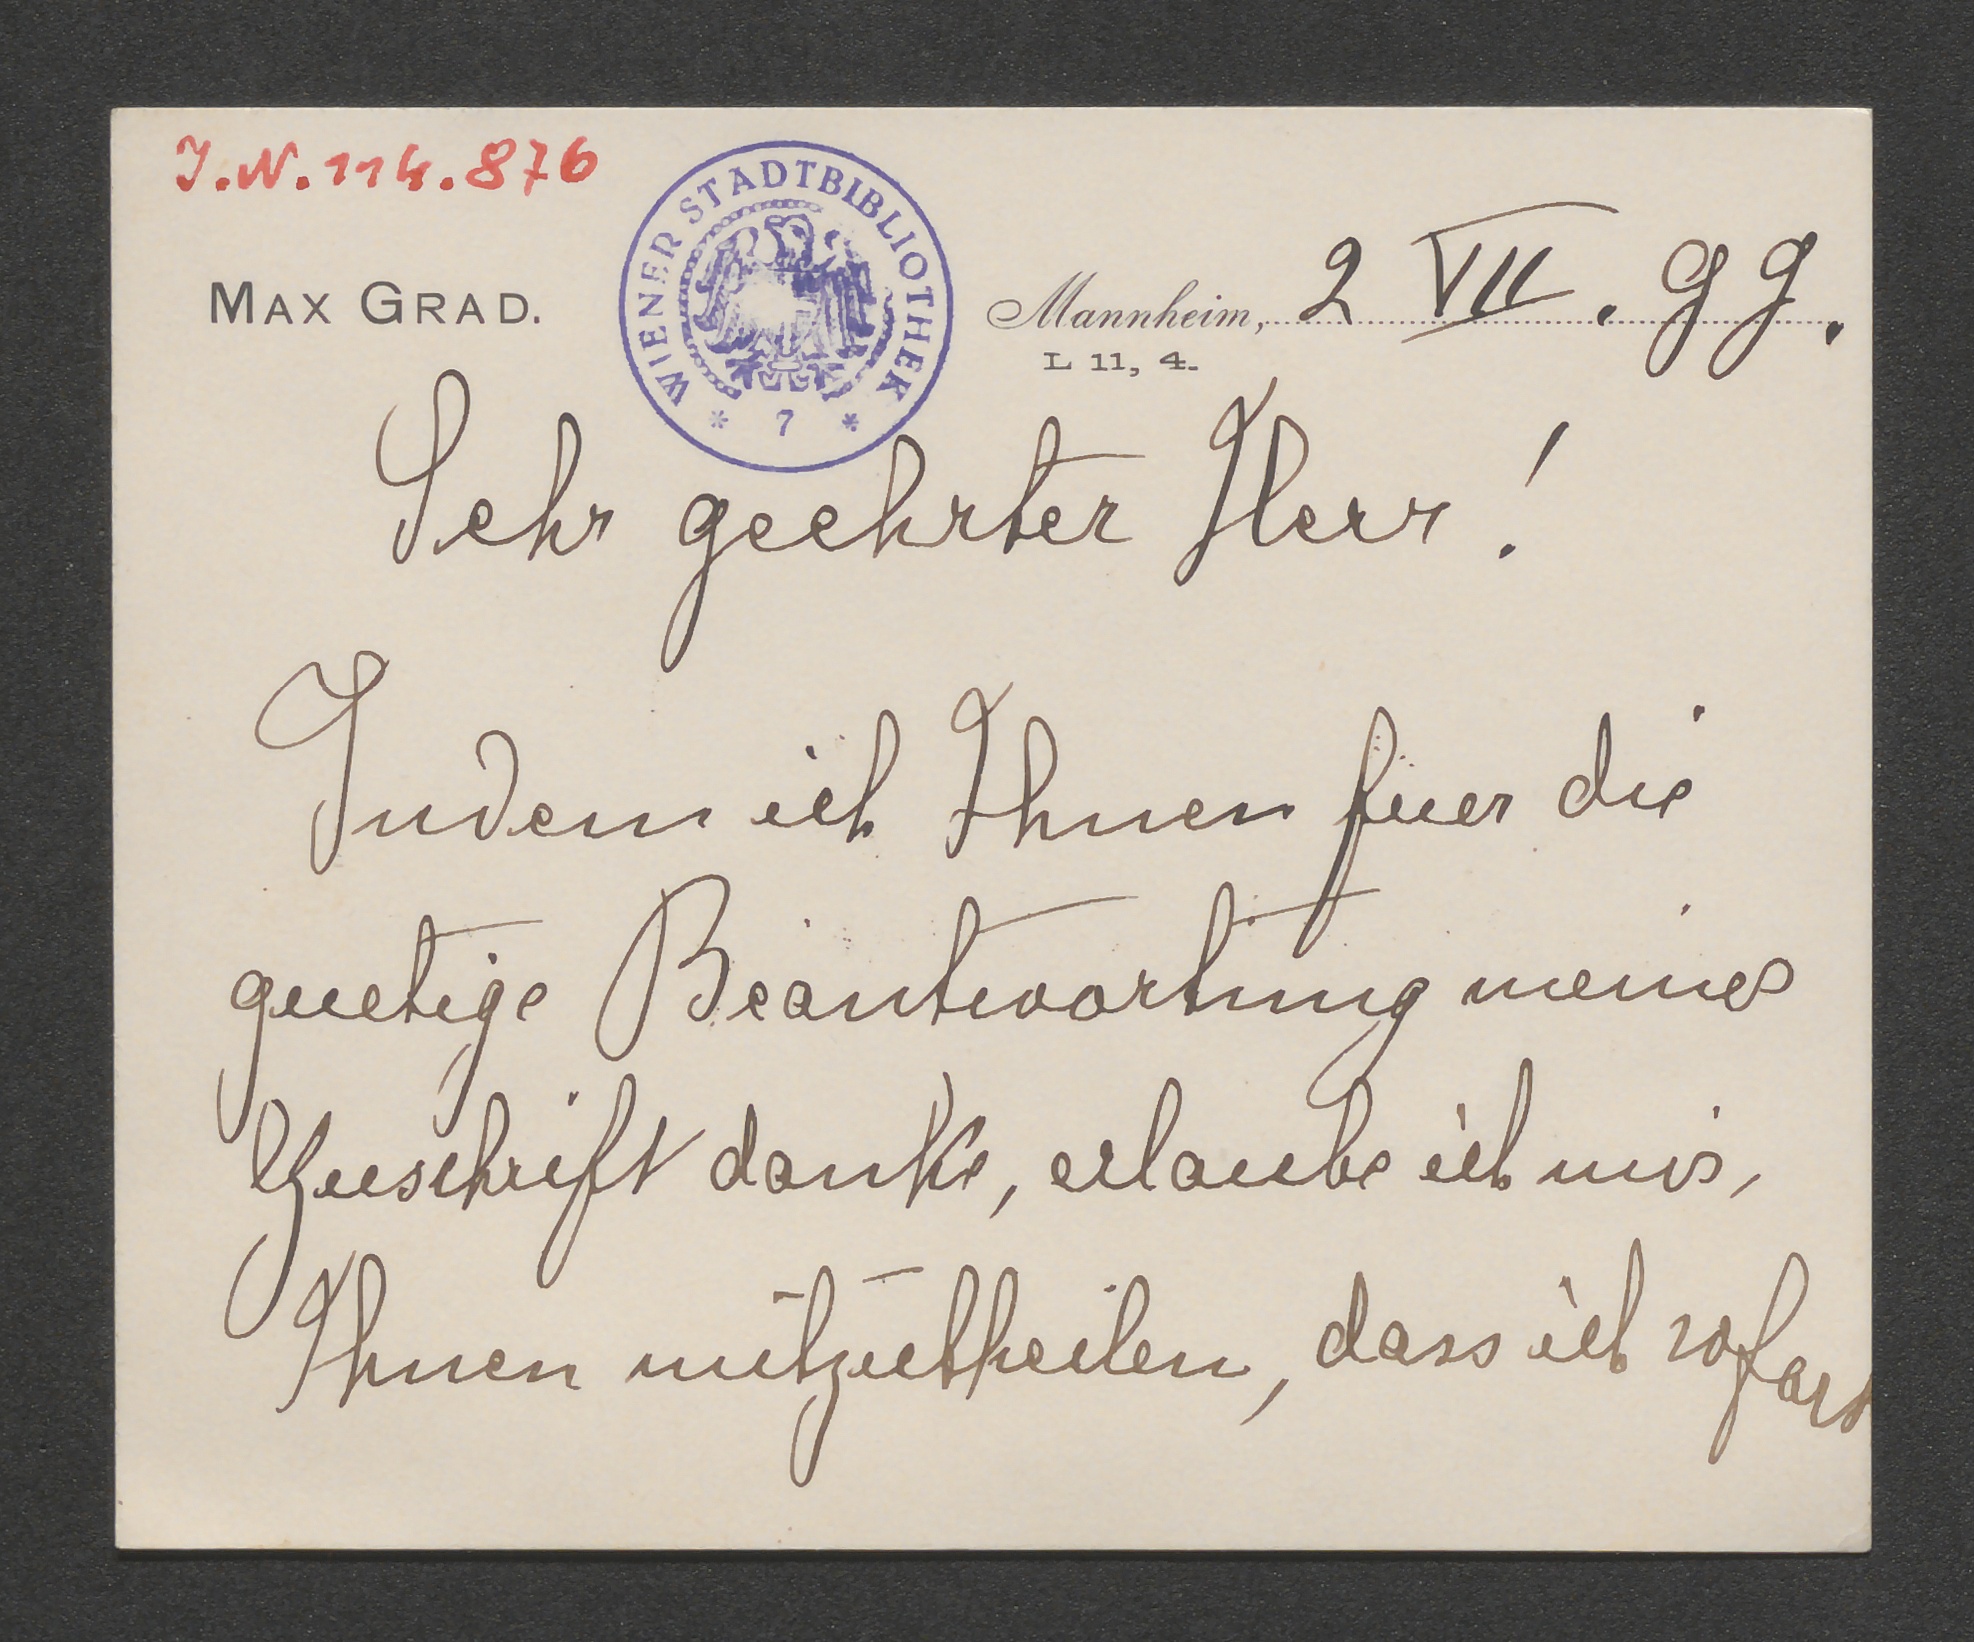 J.N. 114.876
WIENER STADTBIBLIOTHEK
* 7 *
MAX GRAD.
Mannheim, 2 VII. 99.
L 11, 4.
Sehr geehrter Herr!
Indem ich Ihnen fuer die
guetige Beantwortung meines
Zuschrift danke, erlaube ich mir,
Ihnen mitzutheilen, dass ich sofort